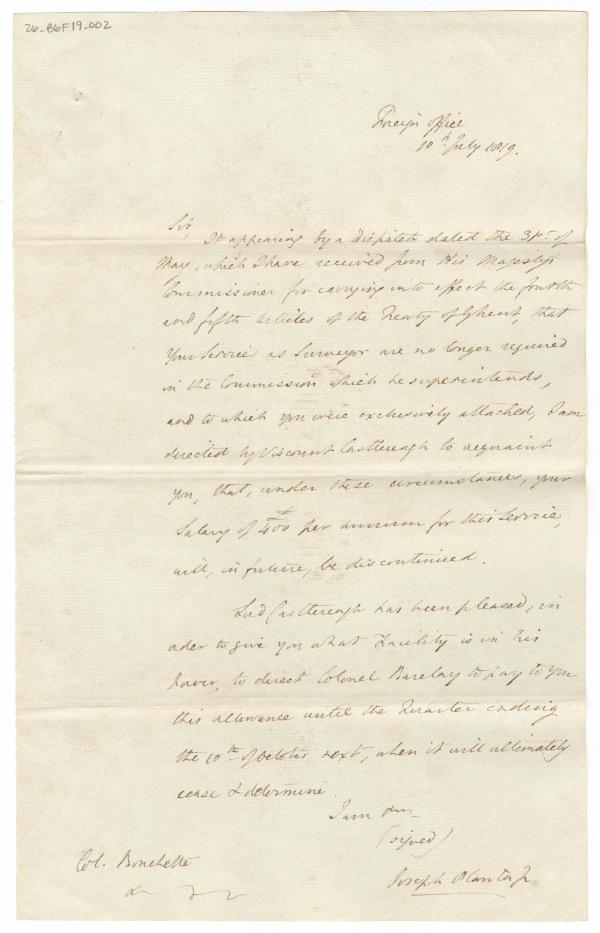 26-B6F19-002
Foreign Office
10th July 1819.
Sir,
It appearing by a Dispatch dated the 31st of
May, which I have received from His Majesty's
Commissioner for carrying into effect the fourth
and fifth articles of the Treaty of Ghent, that
Your Services as Surveyor are no longer required
in the Commission which he superintends,
and to which you were exclusively attached, I am
directed by Viscount Castlereagh to acquaint
you, that, under these circumstances, your
Salary of £400 per annum for this Service,
will, in future, be discontinued.
Lord Castlereagh has been pleased, in
order to give you what Facility is in his
Power, to direct Colonel Barclay to pay to you
this allowance until the Quarter ending
the 10th of October next, when it will ultimately
cease & determine.
I am
(signed)
Joseph Planta Jr
Col. Bouchette